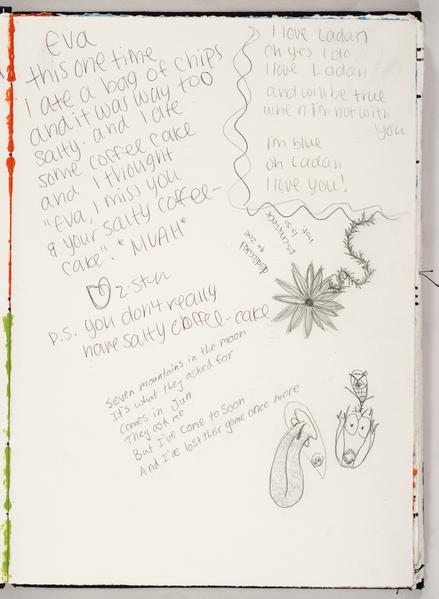 Eva
this one time
I ate a bag of chips
and it was way too
salty. and I ate
some coffee cake
and I thought
"Eva, I miss you
& your salty coffee-
cake". *MUAH*
♡ z-stu
p.s. you don't really
have salty coffee-cake
I love Ladan
oh yes I do
I love Ladan
and will be true
when I'm not with
you
I'm blue
oh Ladan
I love you!
dedicated
to the
Seven mountains in the moon
It's what they asked for
Comes in Jun
They ask me
But I've come to soon
And I've lost this game once more